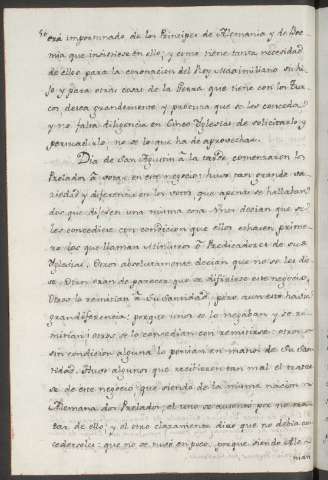 era importunado de los Principes de Alemania y de Boe-
mia que insistiese en ello; y como tiene tanta necesidad
de ellos para la coronacion del Rey Maximiliano su hi-
jo y para otras cosas de la Guerra que tiene con los Tur-
cos, desea grandemente, y procura que se les conceda,
y no falta diligencia en Cinco Iglesias de solicitarlo, y
persuadirlo; no se lo que ha de aprovechar.
Dia de San Agustin à la tarde comenzaron los
Prelados à votar en este negocio; huvo tan grande va-
riedad y diferencia en los votos, que apenas se hallaban
dos que dijesen una misma cosa. Unos decian que se
les concediese con condicion que ellos echasen, prime-
ro los que llaman Ministros ò Predicadores de sus
Yglesias. Otros absolutamente decian que no se les die-
se. Otros eran de parecer que se difiriese este negocio,
Otros lo remitian à Su Santidad, pero aun esto hasta
gran diferencia; porque unos se lo negaban y se re-
mitian; otros se lo concedian con remitirse: otros
sin condicion alguna lo ponian en manos de Su San-
tidad. Huvo algunos que recibiesen tan mal el tratar-
se de este negocio, que siendo de la misma nacion
Alemana dos Prelados, el uno se ausentó por no tra-
tar de ello; y el otro claramente dixo que no debia con-
cedersele; que no se tuvo en poco, porque siendo Ale-
man